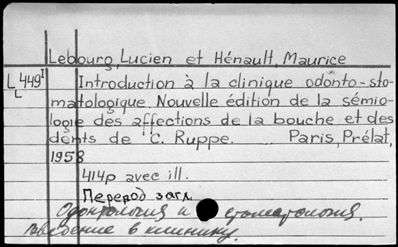 Lebourg, Lucien et Hénault, Maurice
L 449ᴵ Introduction à la clinique odonto-sto-
L matologique. Nouvelle édition de la sémio-
logie des affections de la bouche et des
dents de C. Ruppe. Paris, Prélat,
1958
414p avec ill.
Перевод загл.
Одонтология и стоматология.
введение в клинику.